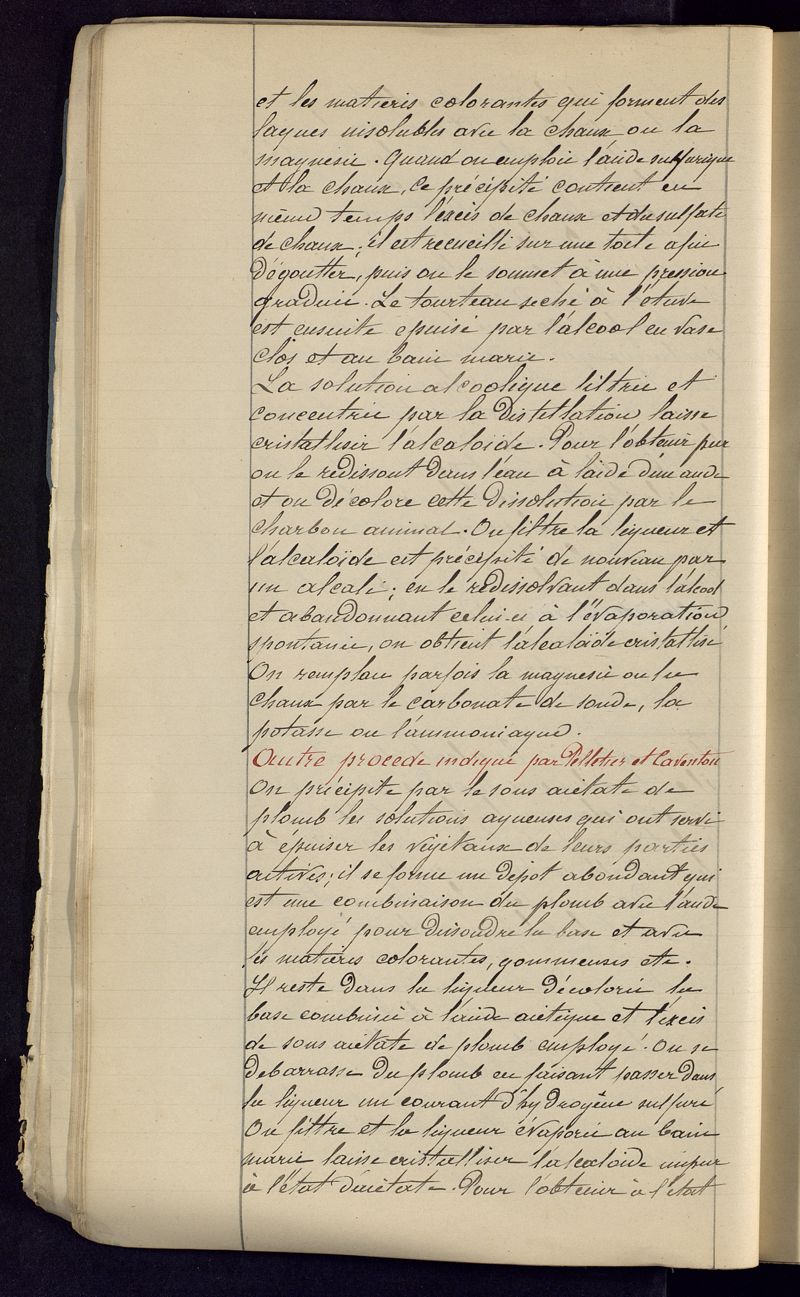 et les matieres colorantes qui forment des
laques insolubles avec la chaux ou la
magnesie. Quand on emploie l'acide sulfurique
et la chaux, ce précipité contient en
même temps l'excés de chaux et du sulfate
de chaux; il est recueilli sur une toile afin
d'égoutter, puis on le soumet à une pression
graduée. Le tourteau seché à l'étuve
est ensuite epuisé par l'alcool en vase
clos et au bain marie.
La solution alcoolique filtrée et
concentrée par la Distillation laisse
cristalliser l'alcaloïde. Pour l'obtenir pur
on le redissout dans l'eau à l'aide d'un acide
et on décolore cette dissolution par le
charbon animal. On filtre la liqueur et
l'alcaloïde est précipité de nouveau par
un alcali; en le redissolvant dans l'alcool
et abandonnant celui-ci à l'évaporation
spontanée, on obtient l'alcaloïde cristallisé
On remplace parfois la magnesie ou la
chaux par le carbonate de soude, la
potasse ou l'ammoniaque.
Autre procede indiqué par Pelletier et Caventou
On précipite par le sous acétate de
plomb les solutions aqueuses qui ont servi
à épuiser les végétaux de leurs parties
actives; il se forme un dépot abondant qui
est une combinaison du plomb avec l'acide
employé pour dissoudre la base et avec
les matieres colorantes, gommeuses etc.
Il reste dans la liqueur décolorée la
base combinée à l'acide acétique et l'excés
de sous acétate de plomb employé. On se
debarrasse du plomb en faisant passer dans
la liqueur un courant d'hydrogène sulfuré
On filtre et la liqueur évaporée au bain
marie laisse cristalliser l'alcaloïde impur
à l'état d'acétate. Pour l'obtenir à l'état